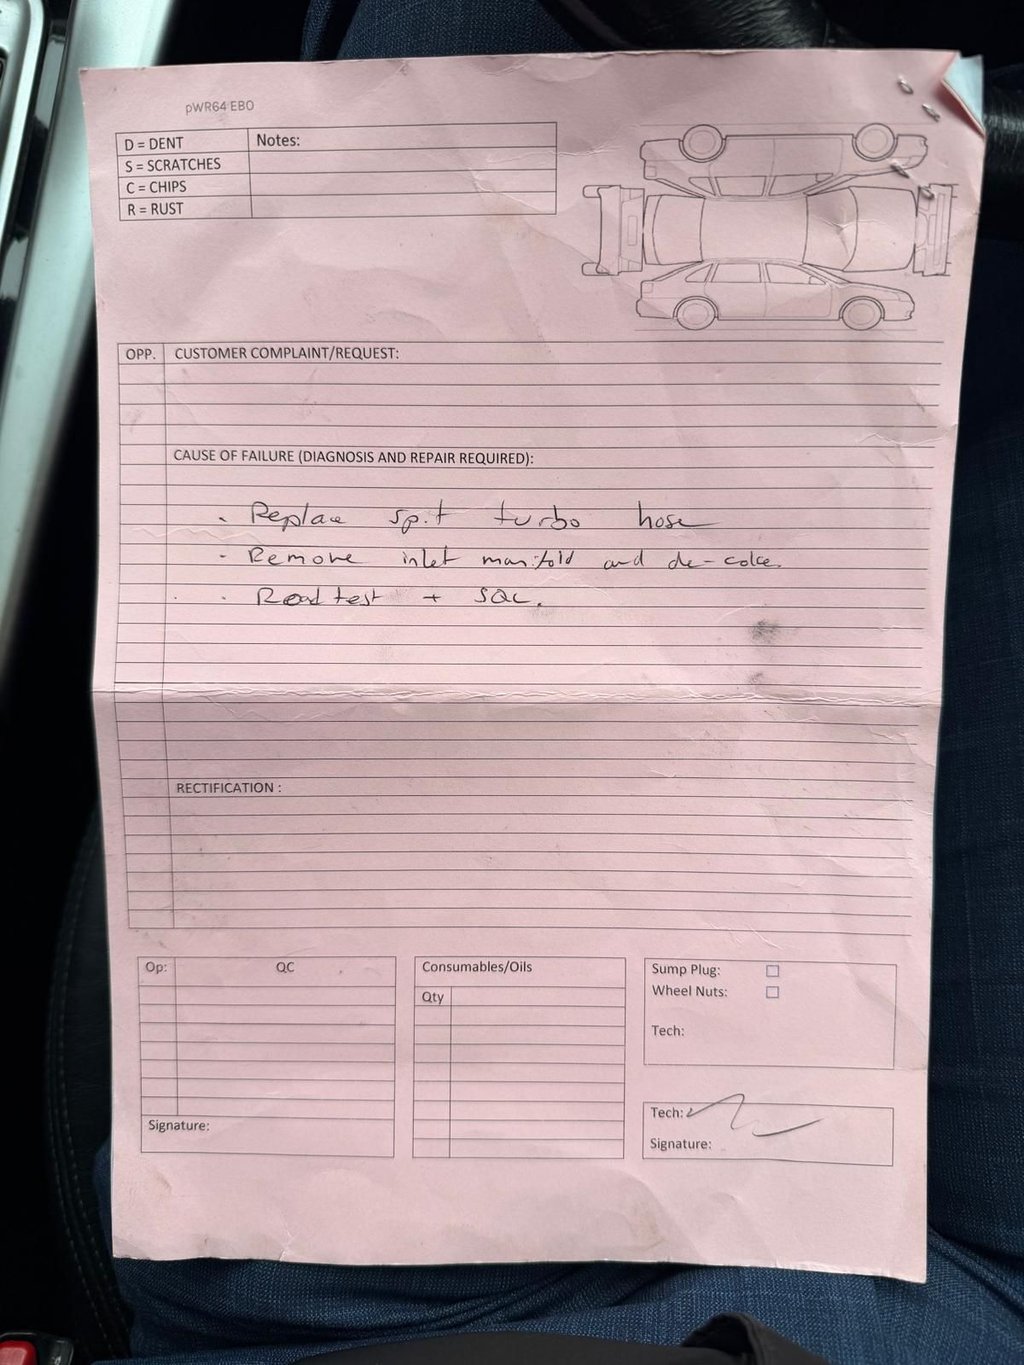 pWR64 EBO
D = DENT
Notes:
S = SCRATCHES
C = CHIPS
R = RUST
OPP. CUSTOMER COMPLAINT/REQUEST:
CAUSE OF FAILURE (DIAGNOSIS AND REPAIR REQUIRED):
- Replace split turbo hose
- Remove inlet manifold and de-coke.
- Road test + SQC.
RECTIFICATION :
Op: QC
Consumables/Oils
Qty
Signature:
Sump Plug:
Wheel Nuts:
Tech:
Tech:
Signature: